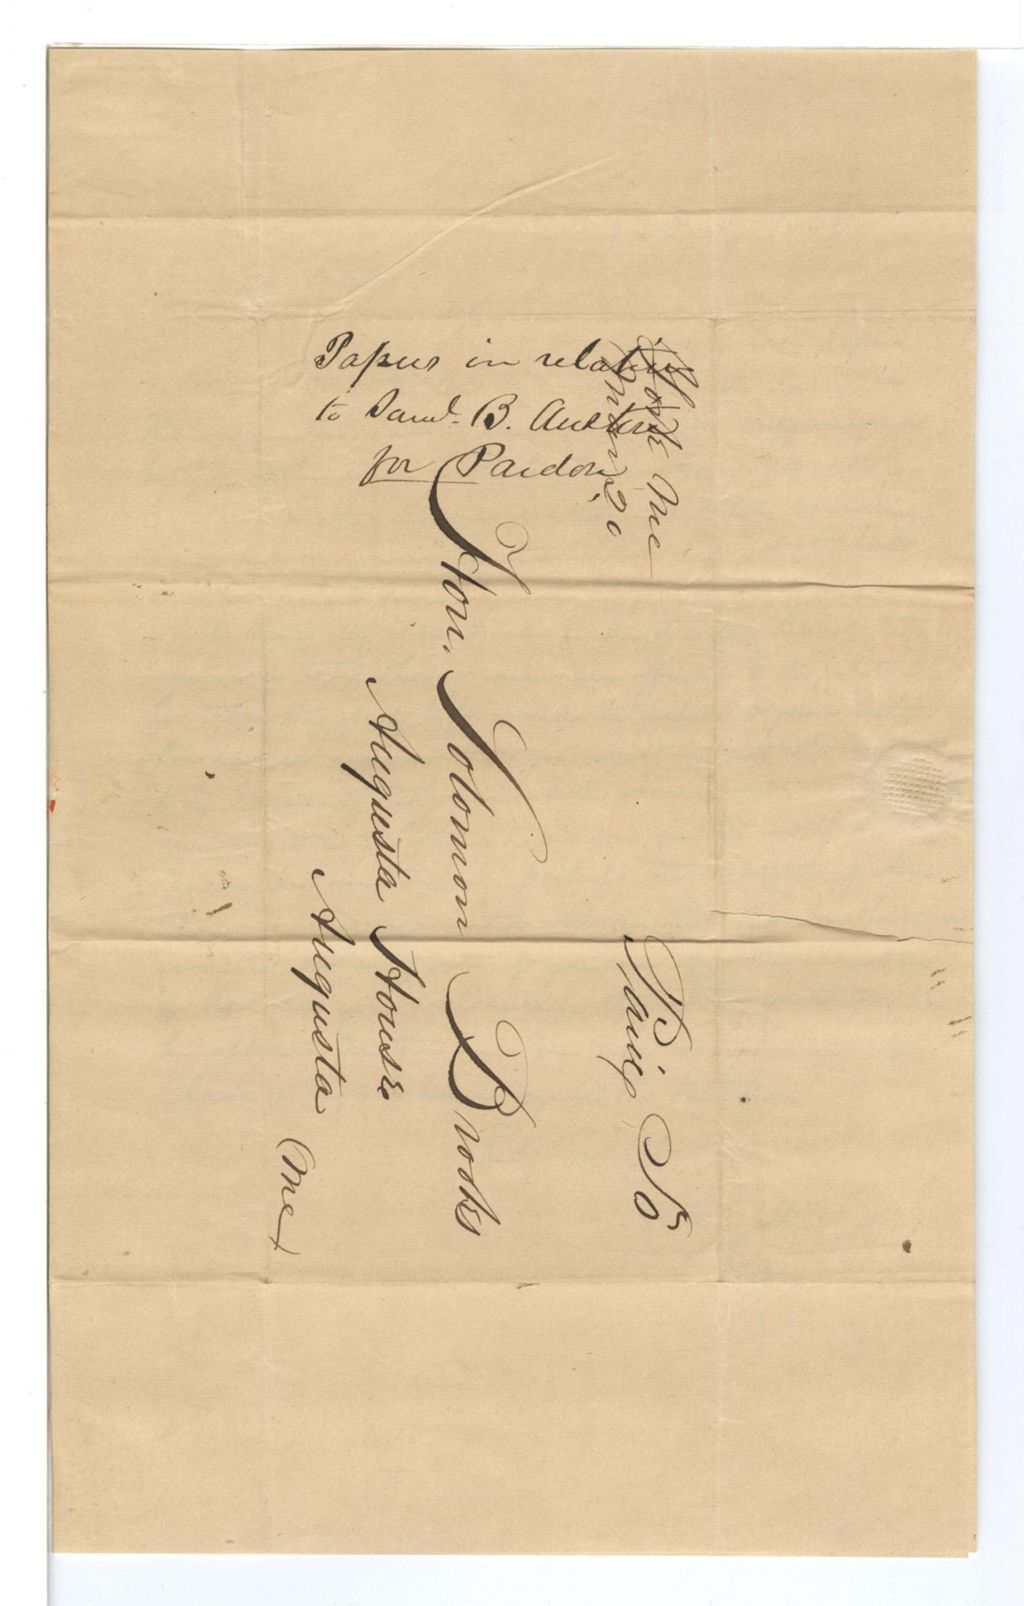 Papers in relation
to Saml. B. Austin
for Pardon
York Me
Mar 20
Paid
Hon. Solomon Brooks
Augusta House
Augusta
(Me)